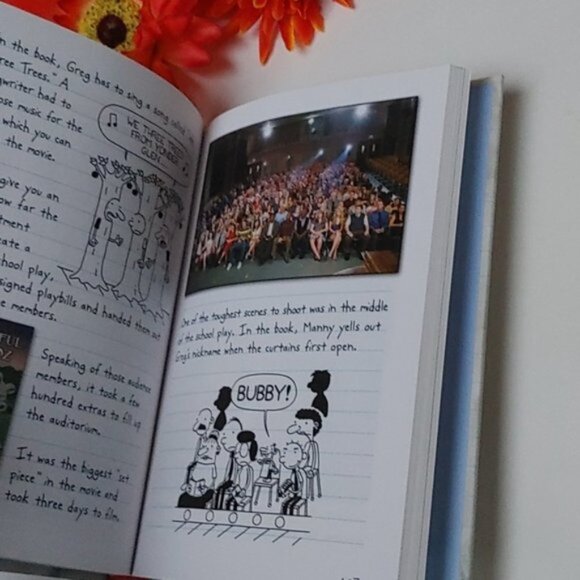 n the book, Greg has to sing a song called
ree Trees." A
gwriter had to
ose music for the
which you can
the movie.
♫ WE THREE TREES
FROM YONDER
GLEN
give you an
ow far the
tment
eate a
chool play,
signed playbills and handed them out
e members.
Speaking of those audience
members, it took a few
hundred extras to fill up
the auditorium.
It was the biggest "set
piece" in the movie and
took three days to film.
One of the toughest scenes to shoot was in the middle
of the school play. In the book, Manny yells out
Greg's nickname when the curtains first open.
BUBBY!